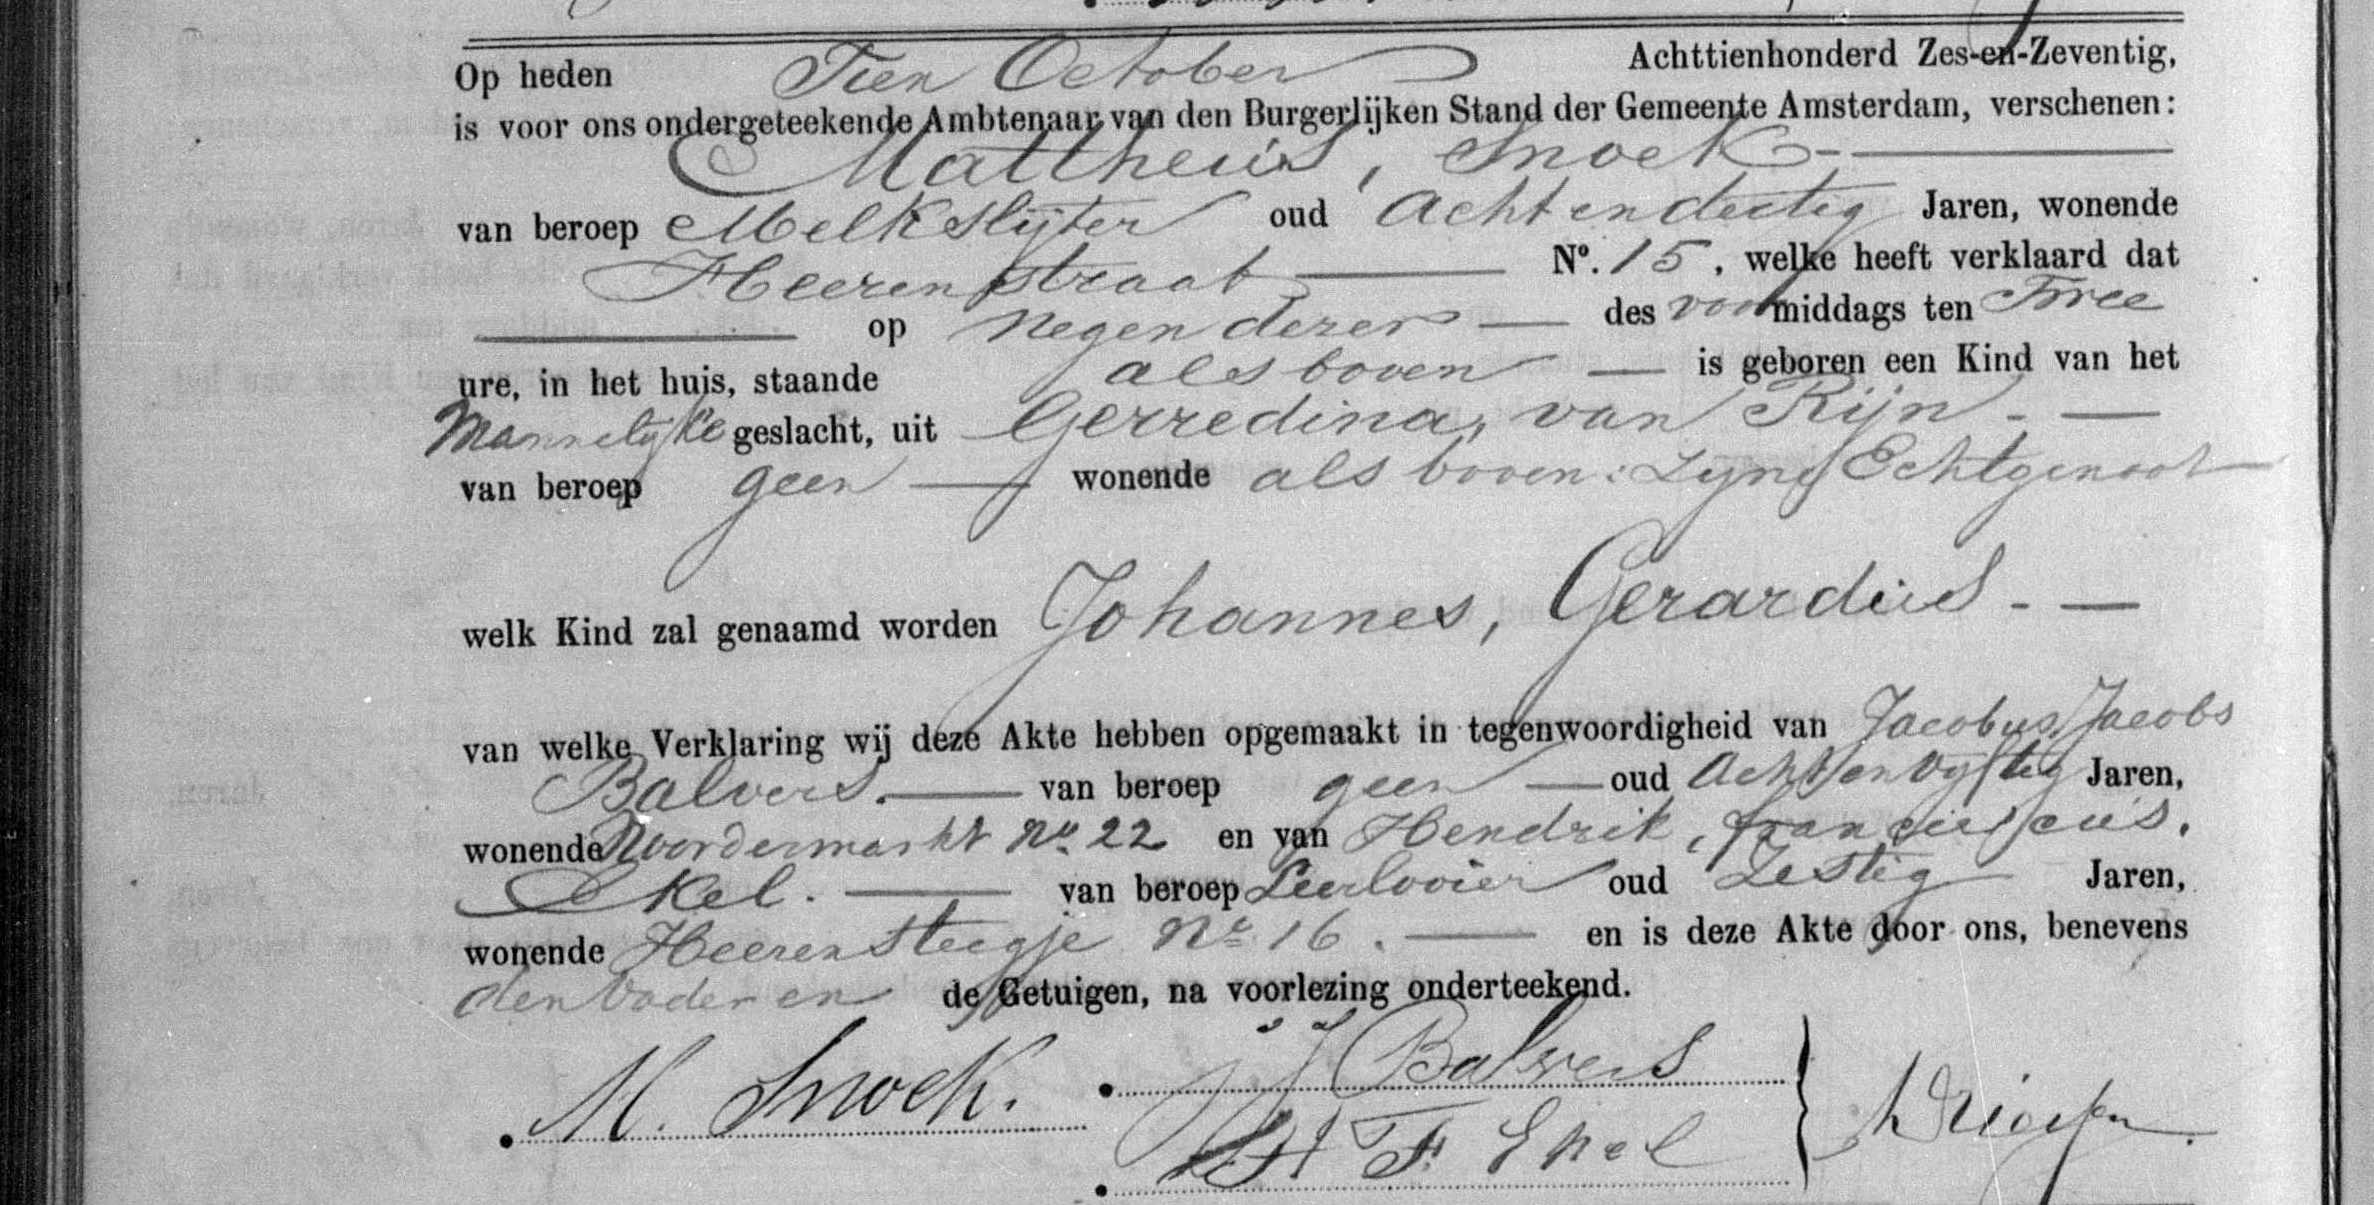 Op heden Tien October Achttienhonderd Zes-en-Zeventig,
is voor ons ondergeteekende Ambtenaar van den Burgerlijken Stand der Gemeente Amsterdam, verschenen:
Mattheus, Snoek
van beroep Melkslijter oud Acht en dertig Jaren, wonende
Heerenstraat No. 15, welke heeft verklaard dat
op Negen dezer des voormiddags ten Twee
ure, in het huis, staande als boven is geboren een Kind van het
Mannelijke geslacht, uit Gerredina, van Rijn
van beroep geen wonende als boven: zijne Echtgenoot
welk Kind zal genaamd worden Johannes, Gerardus
van welke Verklaring wij deze Akte hebben opgemaakt in tegenwoordigheid van Jacobus, Jacobs
Balvers. van beroep geen oud Acht en vyftig Jaren,
wonende Noordermarkt No. 22 en van Hendrik, franciscus,
Ekel. van beroep Leerlooier oud Zestig Jaren,
wonende Heerensteegje No. 16. en is deze Akte door ons, benevens
den Vader en de Getuigen, na voorlezing onderteekend.
M. Snoek.
J J Balvers
H F Ekel